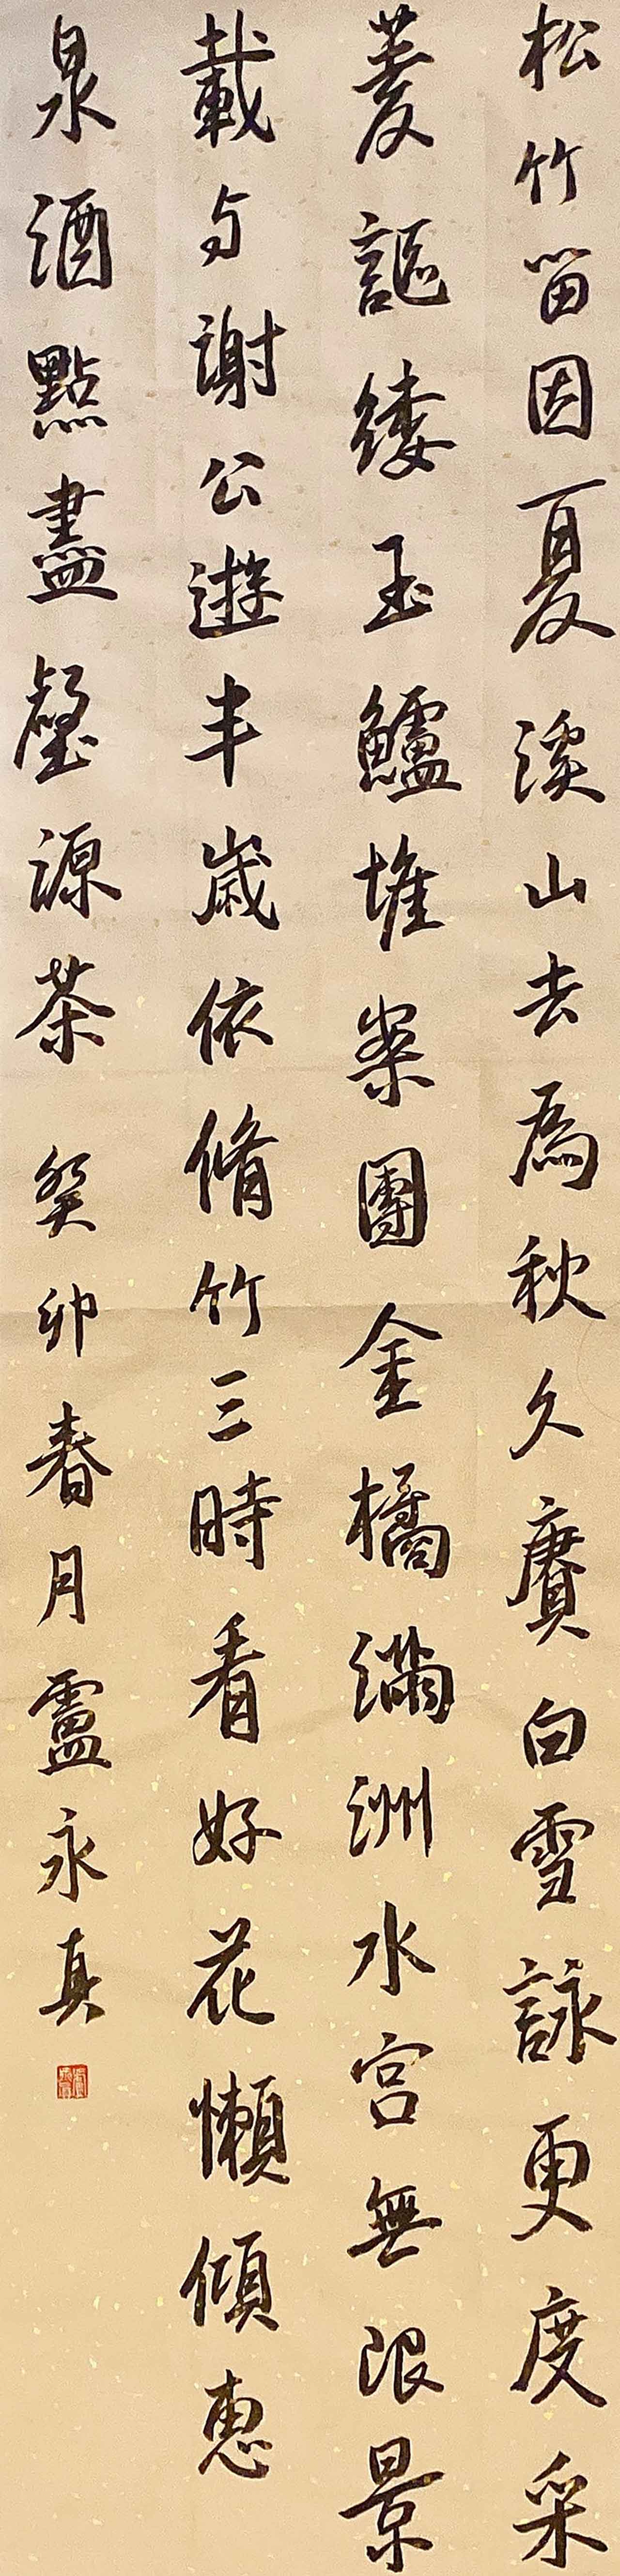 松竹留因夏溪山去為秋久賡白雪詠更度采
菱謳縷玉鱸堆案團金橘滿洲水宫無限景
載与謝公遊半歲依脩竹三時看好花懶傾惠
泉酒點盡壑源茶 癸卯春月盧永真